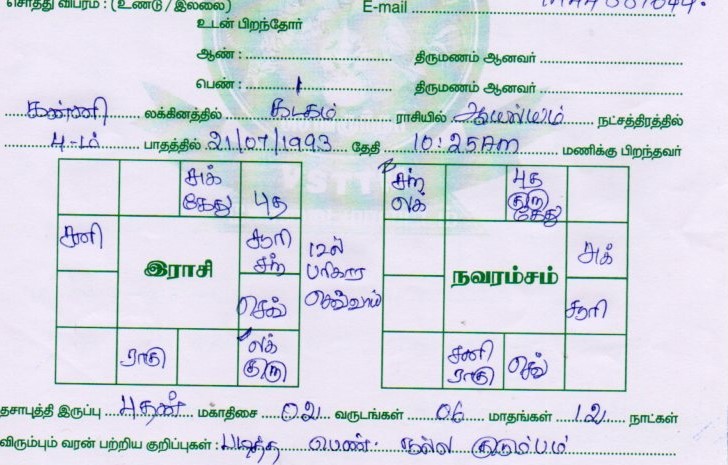 சொத்து விபரம் : (உண்டு / இல்லை) E-mail
உடன் பிறந்தோர்
ஆண் : திருமணம் ஆனவர்
பெண் : 1 திருமணம் ஆனவர்
கன்னி லக்கினத்தில் கடகம் ராசியில் ஆயில்யம் நட்சத்திரத்தில்
4-ம் பாதத்தில் 21/07/1993 தேதி 10:25Am மணிக்கு பிறந்தவர்
சுக் கேது
புத
சனி
சூரி சந்
செவ்
ராகு
லக் குரு
இராசி
12ல் பரிகார செவ்வாய்
சந் லக்
புத குரு கேது
சுக்
சூரி
சனி ராகு
செவ்
நவாம்சம்
தசாபுத்தி இருப்பு புதன் மகாதிசை 02 வருடங்கள் 06 மாதங்கள் 12 நாட்கள்
விரும்பும் வரன் பற்றிய குறிப்புகள் : படித்த பெண். நல்ல குடும்பம்